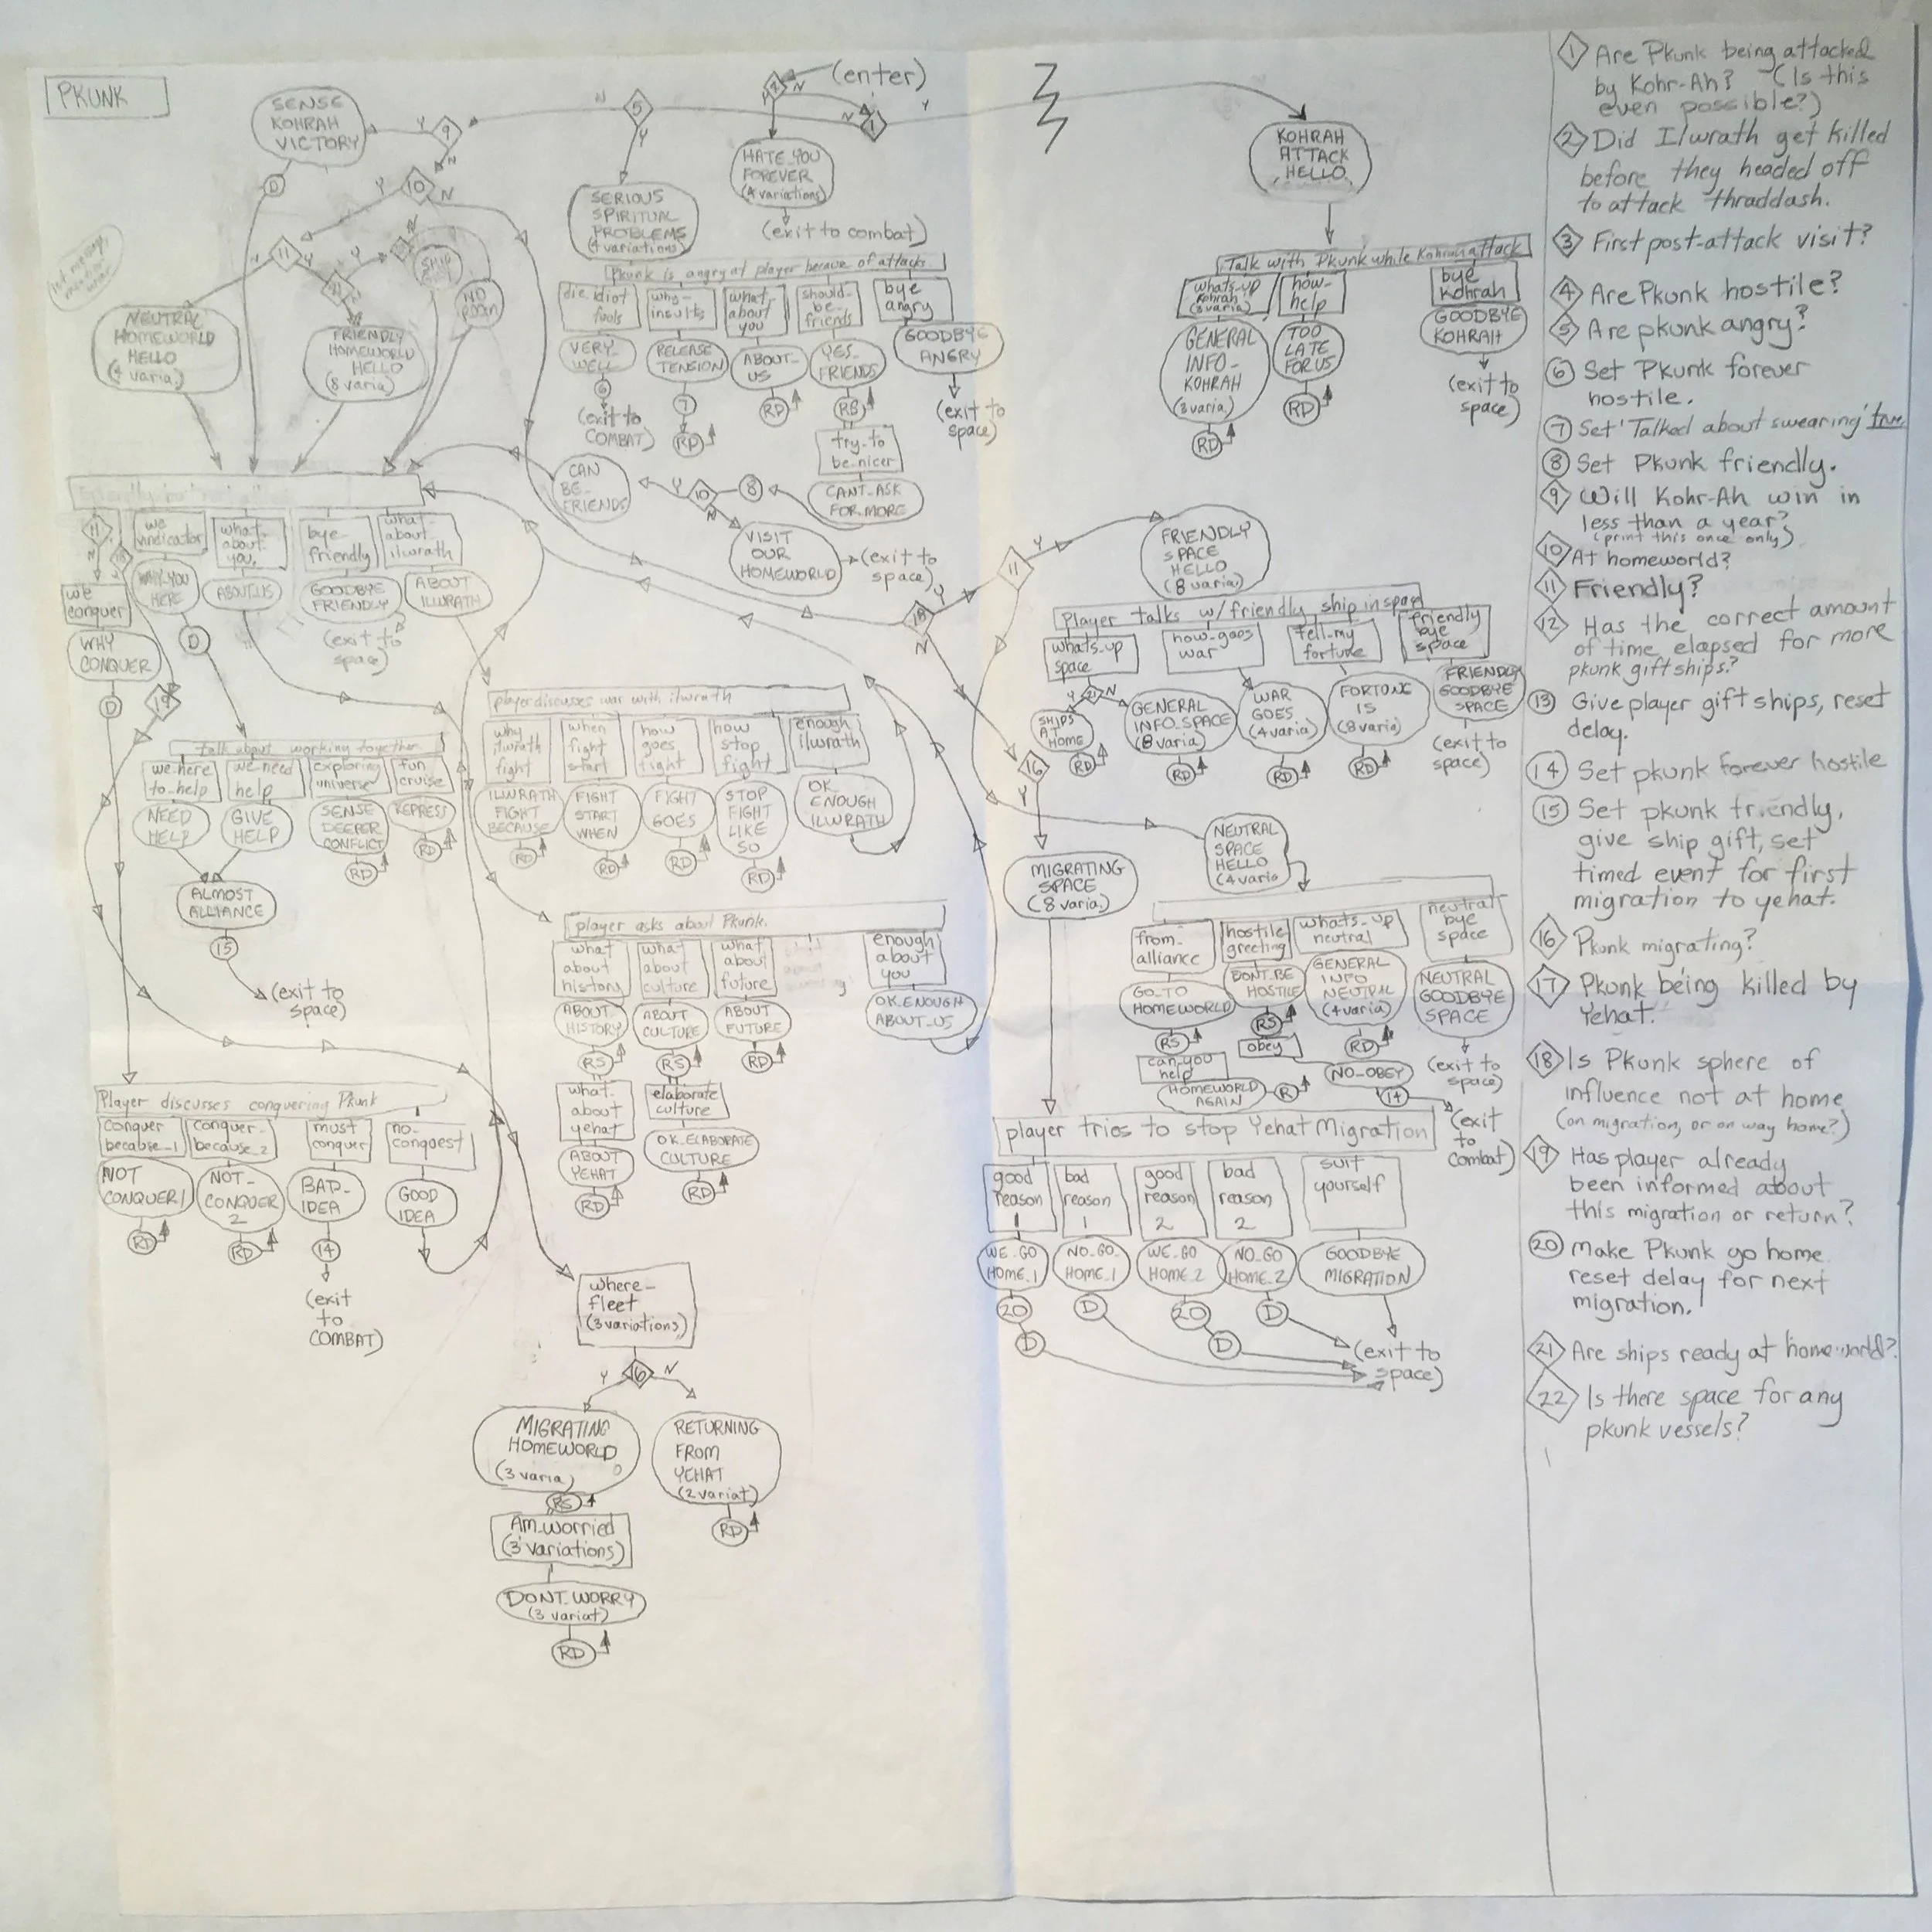 PKUNK
(enter)
4
Y
N
N
1
Y
N
5
Y
Y
9
N
SENSE
KOHRAH
VICTORY
D
Y
10
N
N
11
Y
NO
ROOM
NEUTRAL
HOMEWORLD
HELLO
(4 varia.)
FRIENDLY
HOMEWORLD
HELLO
(8 varia)
SERIOUS
SPIRITUAL
PROBLEMS
(4 variations)
HATE_YOU
FOREVER
(4 variations)
(exit to combat)
Pkunk is angry at player because of attacks
die idiot
fools
VERY_
WELL
6
(exit to
COMBAT)
why-
insults
RELEASE
TENSION
7
RD
what
about
you
ABOUT_
US
RD
should-
be-
friends
YES_
FRIENDS
RS
try-to
be-nicer
CANT_ASK
FOR_MORE
8
10
Y
N
CAN
BE_
FRIENDS
VISIT
OUR
HOMEWORLD
(exit to
space)
bye
angry
GOODBYE
ANGRY
(exit to
space)
KOHRAH
ATTACK
HELLO
Talk with Pkunk while Kohrah attack
whats-up
Kohrah
(3 varia)
GENERAL
INFO_
KOHRAH
(3 varia)
RD
how-
help
TOO
LATE
FOR US
RD
bye
Kohrah
GOODBYE
KOHRAH
(exit to
space)
11
N
we
conquer
WHY
CONQUER
D
we
vindicator
WHY_YOU
HERE
D
what-
about-
you.
ABOUT_US
bye-
friendly
GOODBYE
FRIENDLY
(exit to
space)
what-
about-
ilwrath
ABOUT
ILWRATH
19
talk about working together
we-here
to-help
NEED
HELP
we-need
help
GIVE
HELP
exploring
universe
SENSE
DEEPER
CONFLICT
RD
fun
cruise
REPRESS
RD
ALMOST
ALLIANCE
15
(exit to
space)
player discusses war with ilwrath
why
ilwrath
fight
ILWRATH
FIGHT
BECAUSE
RD
when
fight
start
FIGHT
START
WHEN
RD
how
goes
fight
FIGHT
GOES
RD
how
stop
fight
STOP
FIGHT
LIKE
SO
RD
enough
ilwrath
OK_
ENOUGH
ILWRATH
player asks about Pkunk.
what
about
history
ABOUT
HISTORY
RS
what
about
yehat
ABOUT
YEHAT
RD
what
about
culture
ABOUT
CULTURE
RS
elaborate
culture
OK_ELABORATE
CULTURE
RD
what
about
future
ABOUT
FUTURE
RD
enough
about
you
OK_ENOUGH
ABOUT_US
Player discusses conquering Pkunk
conquer
because_1
NOT
CONQUER 1
RD
conquer-
because_2
NOT_
CONQUER
2
RD
must
conquer
BAD_
IDEA
14
(exit
to
COMBAT)
no-
conquest
GOOD
IDEA
where-
fleet
(3 variations)
Y
16
N
MIGRATING
HOMEWORLD
(3 varia)
RS
Am-worried
(3 variations)
DONT_WORRY
(3 variat)
RD
RETURNING
FROM
YEHAT
(2 variat)
RD
11
Y
18
Y
N
FRIENDLY
SPACE
HELLO
(8 varia)
Player talks w/ friendly ship in space
whats-up
space
Y
21
N
SHIPS
AT
HOME
RD
GENERAL
INFO_SPACE
(8 varia)
RD
how-goes
war
WAR
GOES
(4 varia)
RD
tell-my
fortune
FORTUNE
IS
(8 varia)
RD
friendly
bye
space
FRIENDLY
GOODBYE
SPACE
(exit to
space)
16
Y
MIGRATING
SPACE
(8 varia.)
NEUTRAL
SPACE
HELLO
(4 varia
from-
alliance
GO_TO
HOMEWORLD
RS
can-you
help
HOMEWORLD
AGAIN
R
hostile
greeting
DONT_BE
HOSTILE
RS
obey
NO_OBEY
14
(exit
to
combat)
whats-up
neutral
GENERAL
INFO
NEUTRAL
(4 varia)
RD
neutral
bye
space
NEUTRAL
GOODBYE
SPACE
(exit to
space)
player tries to stop Yehat Migration
good
reason
1
WE_GO
HOME_1
20
D
bad
reason
1
NO_GO_
HOME_1
D
good
reason
2
WE_GO
HOME_2
20
D
bad
reason
2
NO_GO
HOME_2
D
suit
yourself
GOODBYE
MIGRATION
(exit to
space)
1 Are Pkunk being attacked
by Kohr-Ah? (Is this
even possible?)
2 Did Ilwrath get killed
before they headed off
to attack thraddash.
3 First post-attack visit?
4 Are Pkunk hostile?
5 Are pkunk angry?
6 Set Pkunk forever
hostile.
7 Set 'Talked about swearing' true
8 Set Pkunk friendly.
9 Will Kohr-Ah win in
less than a year?
(print this once only)
10 At homeworld?
11 Friendly?
12 Has the correct amount
of time elapsed for more
pkunk gift ships?
13 Give player gift ships, reset
delay.
14 Set pkunk forever hostile
15 Set pkunk friendly,
give ship gift, set
timed event for first
migration to yehat.
16 Pkunk migrating?
17 Pkunk being killed by
Yehat.
18 Is Pkunk sphere of
influence not at home
(on migration, or on way home?)
19 Has player already
been informed about
this migration or return?
20 Make Pkunk go home.
reset delay for next
migration.
21 Are ships ready at homeworld?
22 Is there space for any
pkunk vessels?